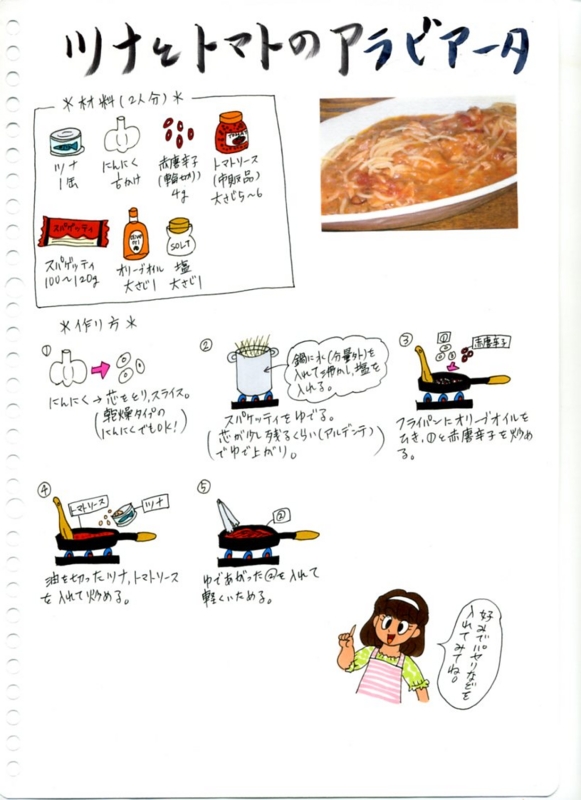 ツナとトマトのアラビアータ
*材料(2人分)*
ツナ
1缶
にんにく
1かけ
赤唐辛子
(輪切り)
4g
トマトソース
(市販品)
大さじ5~6
スパゲッティ
スパゲッティ
100~120g
オリーブオイル
大さじ1
SOLT
塩
大さじ1
*作り方*
①
にんにく→芯をとり、スライス。
(乾燥タイプの
にんにくでもOK!)
②
鍋に水(分量外)を
入れて沸かし、塩を
入れる。
スパゲッティをゆでる。
(芯が少し残るくらい(アルデンテ)
でゆで上がり。)
③
①
赤唐辛子
フライパンにオリーブオイルを
ひき、①と赤唐辛子を炒め
る。
④
トマトソース
ツナ
油を切ったツナ、トマトソース
を入れて炒める。
⑤
②
ゆであがった②を入れて
軽くいためる。
好みでパセリなどを
入れてみてね。